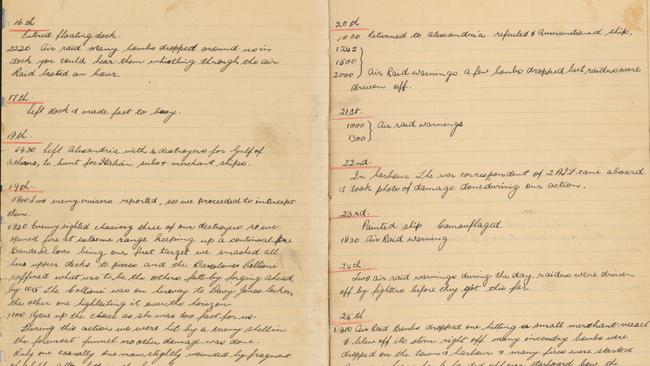 16th
Entered floating dock.
2220 Air raid many bombs dropped around us in
dock you could hear them whistling through the air
Raid lasted an hour.
17th.
Left dock & made fast to buoy.
18th.
0430 Left Alexandria with 4 destroyers for Gulf of
Athens, to hunt for Italian subs & merchant ships.
19th.
Two enemy cruisers reported, so we proceeded to intercept
them.
0820 Enemy sighted chasing three of our destroyers so we
opened fire at extreme range keeping up a continual fire
Bande being our first target we smashed all
her upper decks to pieces and the Bartolomo
suffered what was to be the others fate by forging ahead
by 1015 The was on her way to Davy Jones locker,
the other one hightailing it over the horizon.
1100 Gave up the chase as she was too fast for us.
During this action we were hit by a enemy shell in
the foremost funnel no other damage was done.
Only one casualty one man slightly wounded by fragment
20th
1030 Returned to Alexandria refueled & Ammunitioned ship.
1245
1500
2000 } Air Raid warnings a few bombs dropped but raiders were
driven off.
21st.
1000
1300 } Air raid warnings
22nd.
In harbour The war correspondent of 2 A.I.F. came aboard
& took photo of damage done during our actions.
23rd.
Painted ship camouflaged.
1830 Air Raid warning.
24th.
Two air raid warnings during the day raiders were driven
off by fighters before they got this far.
25th.
Air Raid Bombs dropped one hitting a small merchant vessel
& blew off its stern right off many incendry bombs were
dropped on the town & harbour & many fires were started
starboard bow the